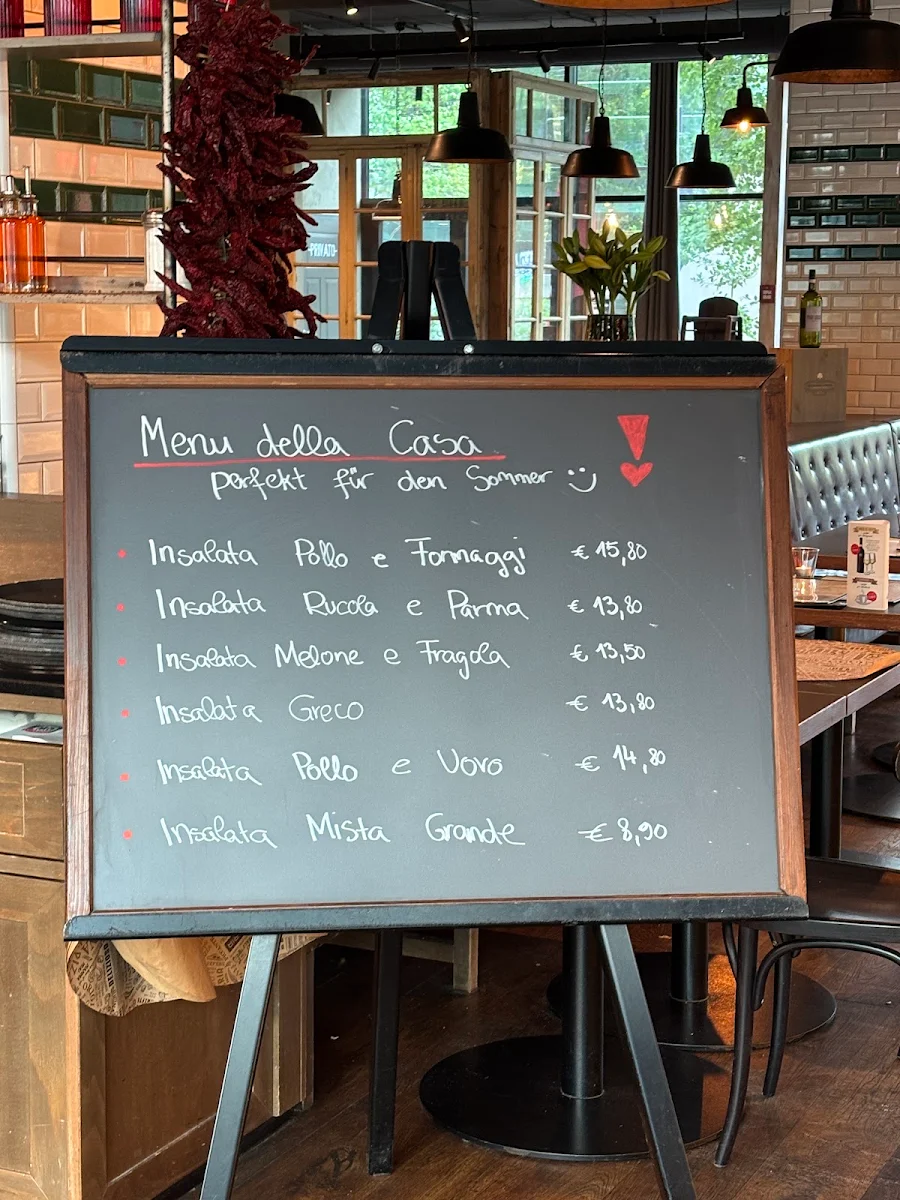 PRIVATO
Menu della Casa
perfekt für den Sommer
Insalata Pollo e Formaggi € 15,80
Insalata Rucola e Parma € 13,80
Insalata Melone e Fragola € 13,50
Insalata Greco € 13,80
Insalata Pollo e Uovo € 14,80
Insalata Mista Grande € 8,90